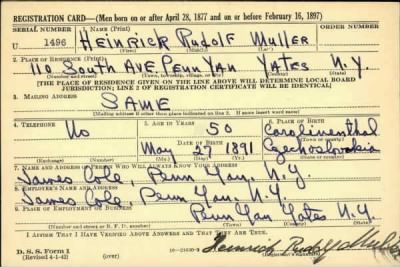 REGISTRATION CARD—(Men born on or after April 28, 1877 and on or before February 16, 1897)
SERIAL NUMBER 1. NAME (Print) ORDER NUMBER
U 1496 HEINRICK RUDOLF MULLER
(First) (Middle) (Last)
2. PLACE OF RESIDENCE (Print)
110 SOUTH AVE PENN YAN YATES N.Y.
(Number and street) (Town, township, village, or city) (County) (State)
[THE PLACE OF RESIDENCE GIVEN ON THE LINE ABOVE WILL DETERMINE LOCAL BOARD
JURISDICTION; LINE 2 OF REGISTRATION CERTIFICATE WILL BE IDENTICAL]
3. MAILING ADDRESS
SAME
[Mailing address if other than place indicated on line 2. If same insert word same]
4. TELEPHONE 5. AGE IN YEARS 6. PLACE OF BIRTH
No 50 Carolinenthal
DATE OF BIRTH (Town or county)
May 27 1891 Czechoslovakia
(Exchange) (Number) (Mo.) (Day) (Yr.) (State or country)
7. NAME AND ADDRESS OF PERSON WHO WILL ALWAYS KNOW YOUR ADDRESS
James Cole, Penn Yan, N.Y.
8. EMPLOYER'S NAME AND ADDRESS
James Cole, Penn Yan, N.Y.
9. PLACE OF EMPLOYMENT OR BUSINESS
Penn Yan Yates N.Y
(Number and street or R. F. D. number) (Town) (County) (State)
I AFFIRM THAT I HAVE VERIFIED ABOVE ANSWERS AND THAT THEY ARE TRUE.
D. S. S. Form 1
(Revised 4-1-42) (over) Heinrich Rudolf Muller